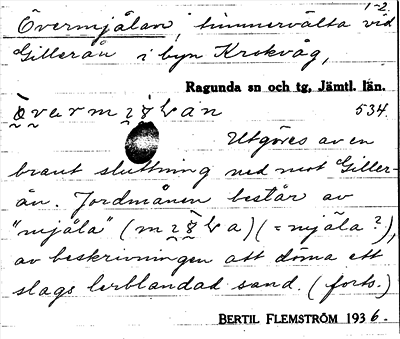 1-2.
Övermjälan, timmervälta vid
Gillerån i byn Krokvåg,
Ragunda sn och tg, Jämtl. län.
534.
Utgöres av en
brant sluttning ned mot Giller-
ån. Jordmånen består av
"mjåla" (= mjäla?),
av beskrivningen att döma ett
slags lerblandad sand. (forts.)
BERTIL FLEMSTRÖM 1936.